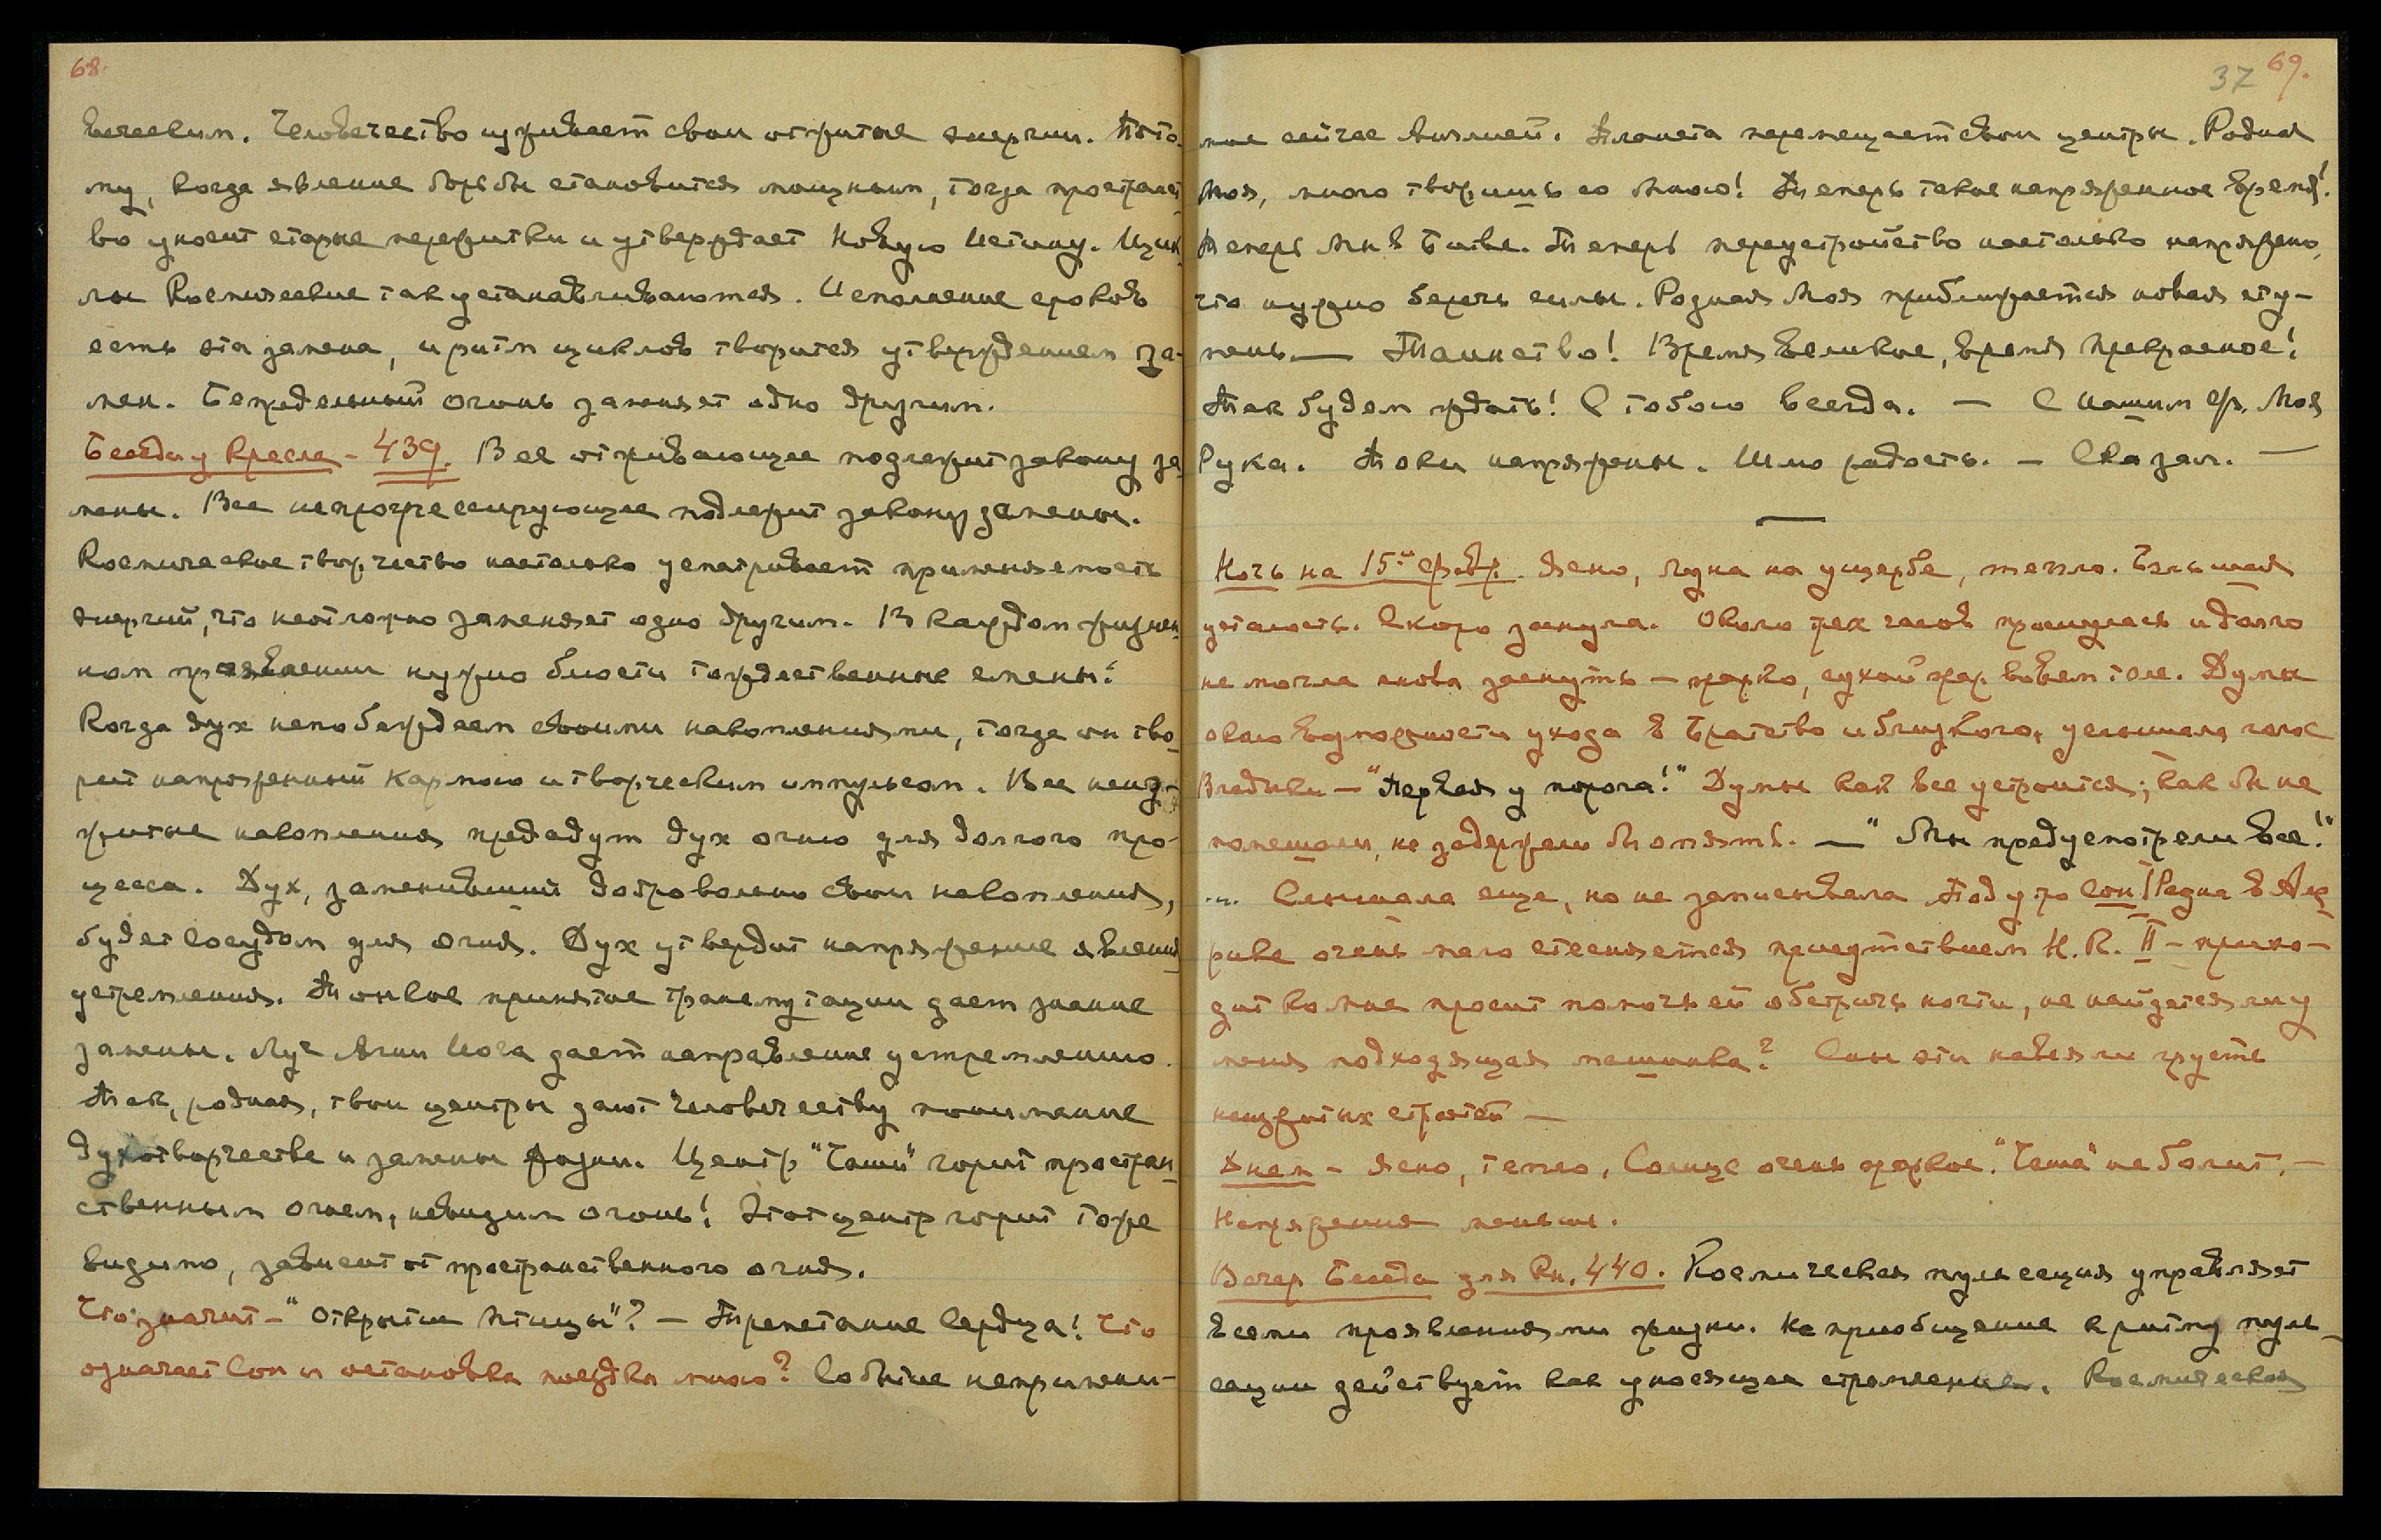 68.
ческим. Человечество изживает свои открытые энергии. Пото-
му, когда явление борьбы становится мощным, тогда пространст-
во уносит старые пережитки и утверждает Новую Истину. Цик-
лы Космические так устанавливаются. Исполнение сроков
есть эта замена, и ритм циклов творится утверждением за-
мен. Беспредельный огонь заменяет одно другим.
Беседа у Кресла - 439. Все отживающее подлежит закону за-
мены. Все непрогрессирующее подлежит закону замены.
Космическое творчество настолько усматривает применяемость
энергий, что неотложно заменяет одно другим. В каждом жизнен-
ном проявлении нужно блюсти тождественные смены!
Когда дух непобеждаем своими накоплениями, тогда он тво-
рит напряженный Кармою и творческим импульсом. Все неиз-
житые накопления предадут дух огню для долгого про-
цесса. Дух, заменивший добровольно свои накопления,
будет Сосудом для огня. Дух утвердит напряжение явления
устремления. Тонкое принятие трансмутации дает знание
замены. Луч Агни Йога дает направление устремлению.
Так, родная, твои центры дают Человечеству понимание
духотворчества и замены жизни. Центр "Чаши" горит простран-
ственным огнем, невидим огонь! Этот центр горит тоже
видимо, зависит от пространственного огня.
Что значит - "открытие птицы"? - Трепетание Сердца! Что
означает Сон и остановка поездка мимо? Событие непримени-
37 69.
мое сейчас Англией. Планета перемещает свои центры. Родная
Моя, много творишь со Мною! Теперь такое напряженное время!
Теперь Мы в Битве. Теперь переустройство настолько напряжено,
что нужно беречь силы. Родная Моя приближается новая сту-
пень — Таинство! Время великое, время прекрасное!
Так будем ждать! С тобою всегда. — С нашим Ф. Моя
Рука. Токи напряжены. Шлю радость. — Сказал. —
Ночь на 15ое февр. Ясно, луна на ущербе, тепло. Большая
усталость. Скоро заснула. Около трех часов проснулась и долго
не могла снова заснуть — жарко, сухой жар во всем теле. Думы
около возможности ухода в Братство и близкого, услышала голос
Владыки — "Первая у порога!" Думы как все устроится; как бы не
помешали, не задержали бы опять. — "Мы предусмотрели все!"
... Слышала еще, но не записывала Под утро Сон I Радна в Аме-
рике очень мало стесняется присутствием Н.К. II - прихо-
дит ко мне просит помочь ей обстричь ногти, не найдется ли у
меня подходящая машинка? Сны эти навеяли грусть
неизжитых страстей —
Днем - Ясно, тепло, Солнце очень жаркое. "Чаша" не болит. —
Напряжения меньше.
Вечер Беседа для Кн. 440. Космическая пульсация управляет
всеми проявлениями жизни. Неприобщение к ритму пуль-
сации действует как уносящее стремление. Космическая